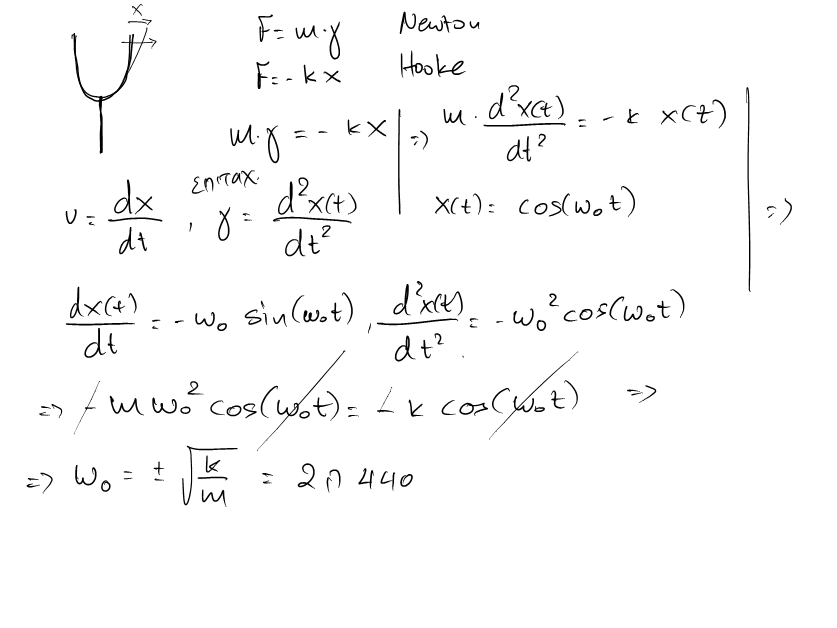 x
F = m·γ Newton
F = - k x Hooke
m·γ = - k x | => m · d²x(t)/dt² = - k x(t)
υ = dx/dt , επιταχ. γ = d²x(t)/dt² | x(t) = cos(ω₀t) | =>
dx(t)/dt = - ω₀ sin(ω₀t) , d²x(t)/dt² = - ω₀² cos(ω₀t)
=> - m ω₀² cos(ω₀t) = - k cos(ω₀t) =>
=> ω₀ = ± √(k/m) = 2π 440